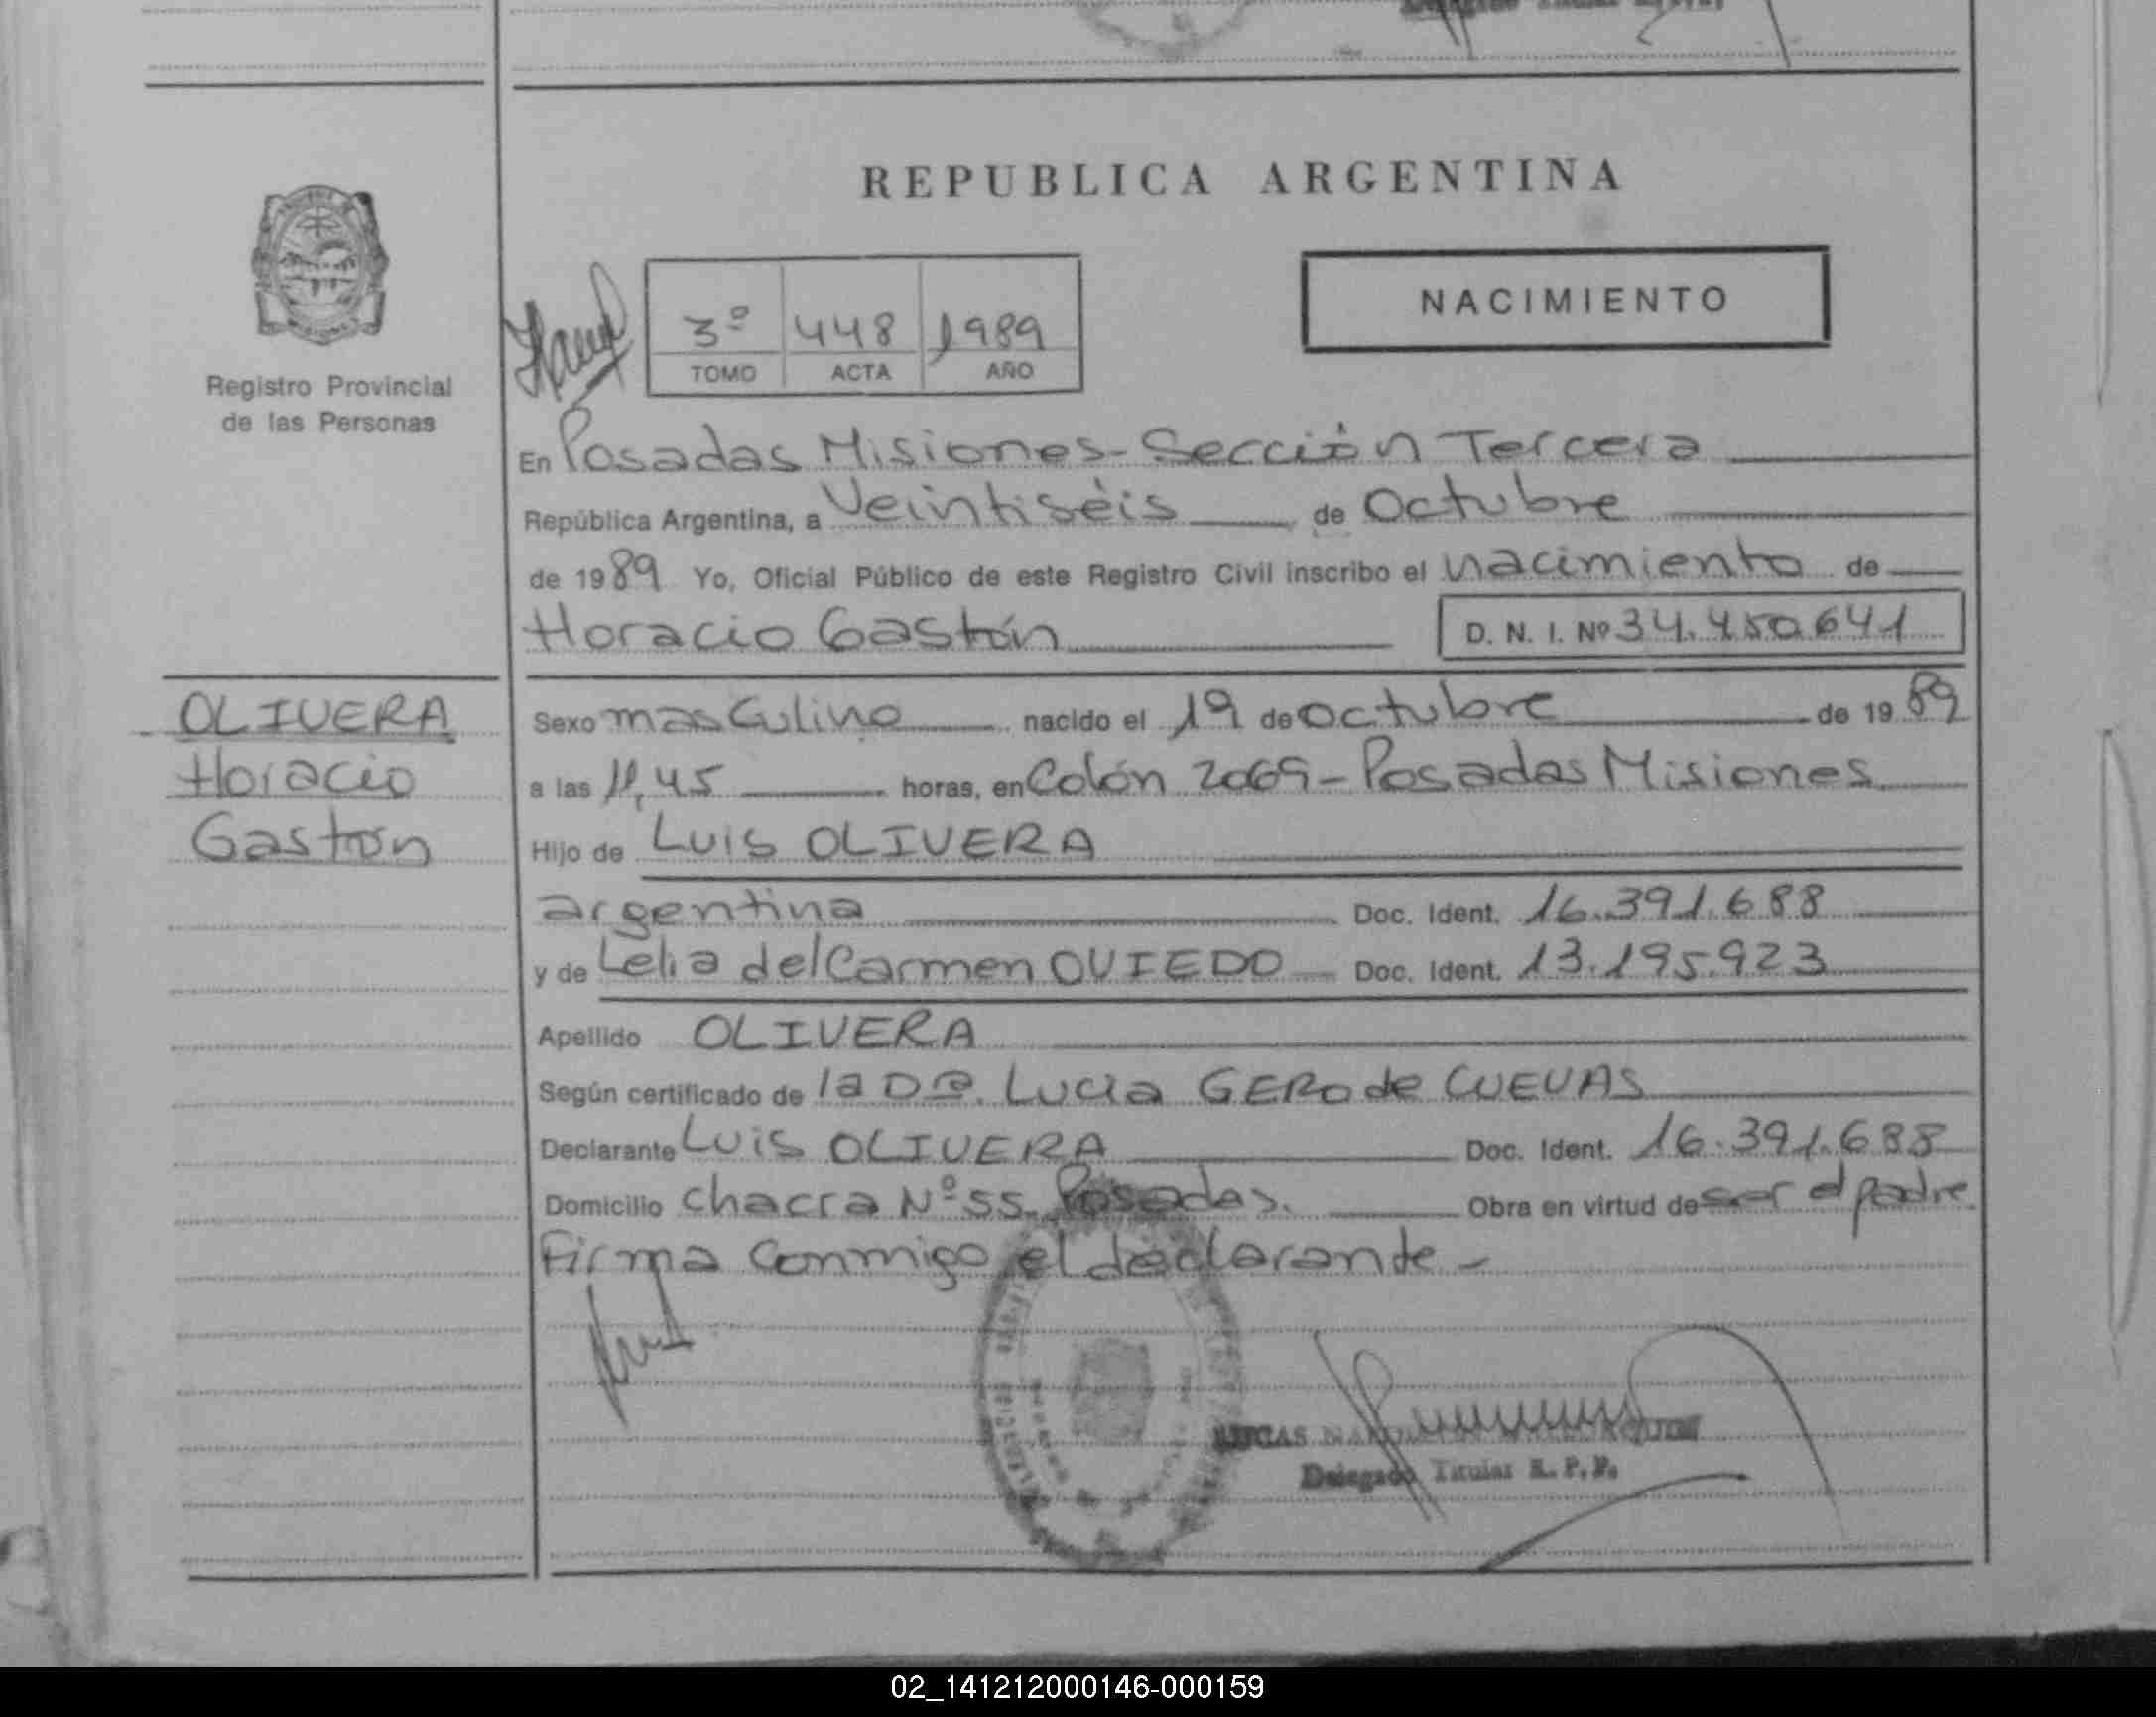 REPUBLICA ARGENTINA
NACIMIENTO
3º 448 1989
TOMO ACTA AÑO
Registro Provincial
de las Personas
En Posadas Misiones - Sección Tercera
República Argentina, a Veintiséis de Octubre
de 1989 Yo, Oficial Público de este Registro Civil inscribo el nacimiento de
Horacio Gastón D. N. I. Nº 34.450.641
OLIVERA
Horacio
Gastón
Sexo masculino nacido el 19 de octubre de 1989
a las 11,45 horas, en Colón 2069 - Posadas Misiones
Hijo de Luis OLIVERA
argentina Doc. Ident. 16.391.688
y de Lelia del Carmen OVIEDO Doc. Ident. 13.195.923
Apellido OLIVERA
Según certificado de la Dra. Lucia GERO de CUEVAS
Declarante Luis OLIVERA Doc. Ident. 16.391.688
Domicilio Chacra Nº 55 Posadas. Obra en virtud de ser el padre
Firma conmigo el declarante -
Delegado Titular R. P. P.
02_141212000146-000159